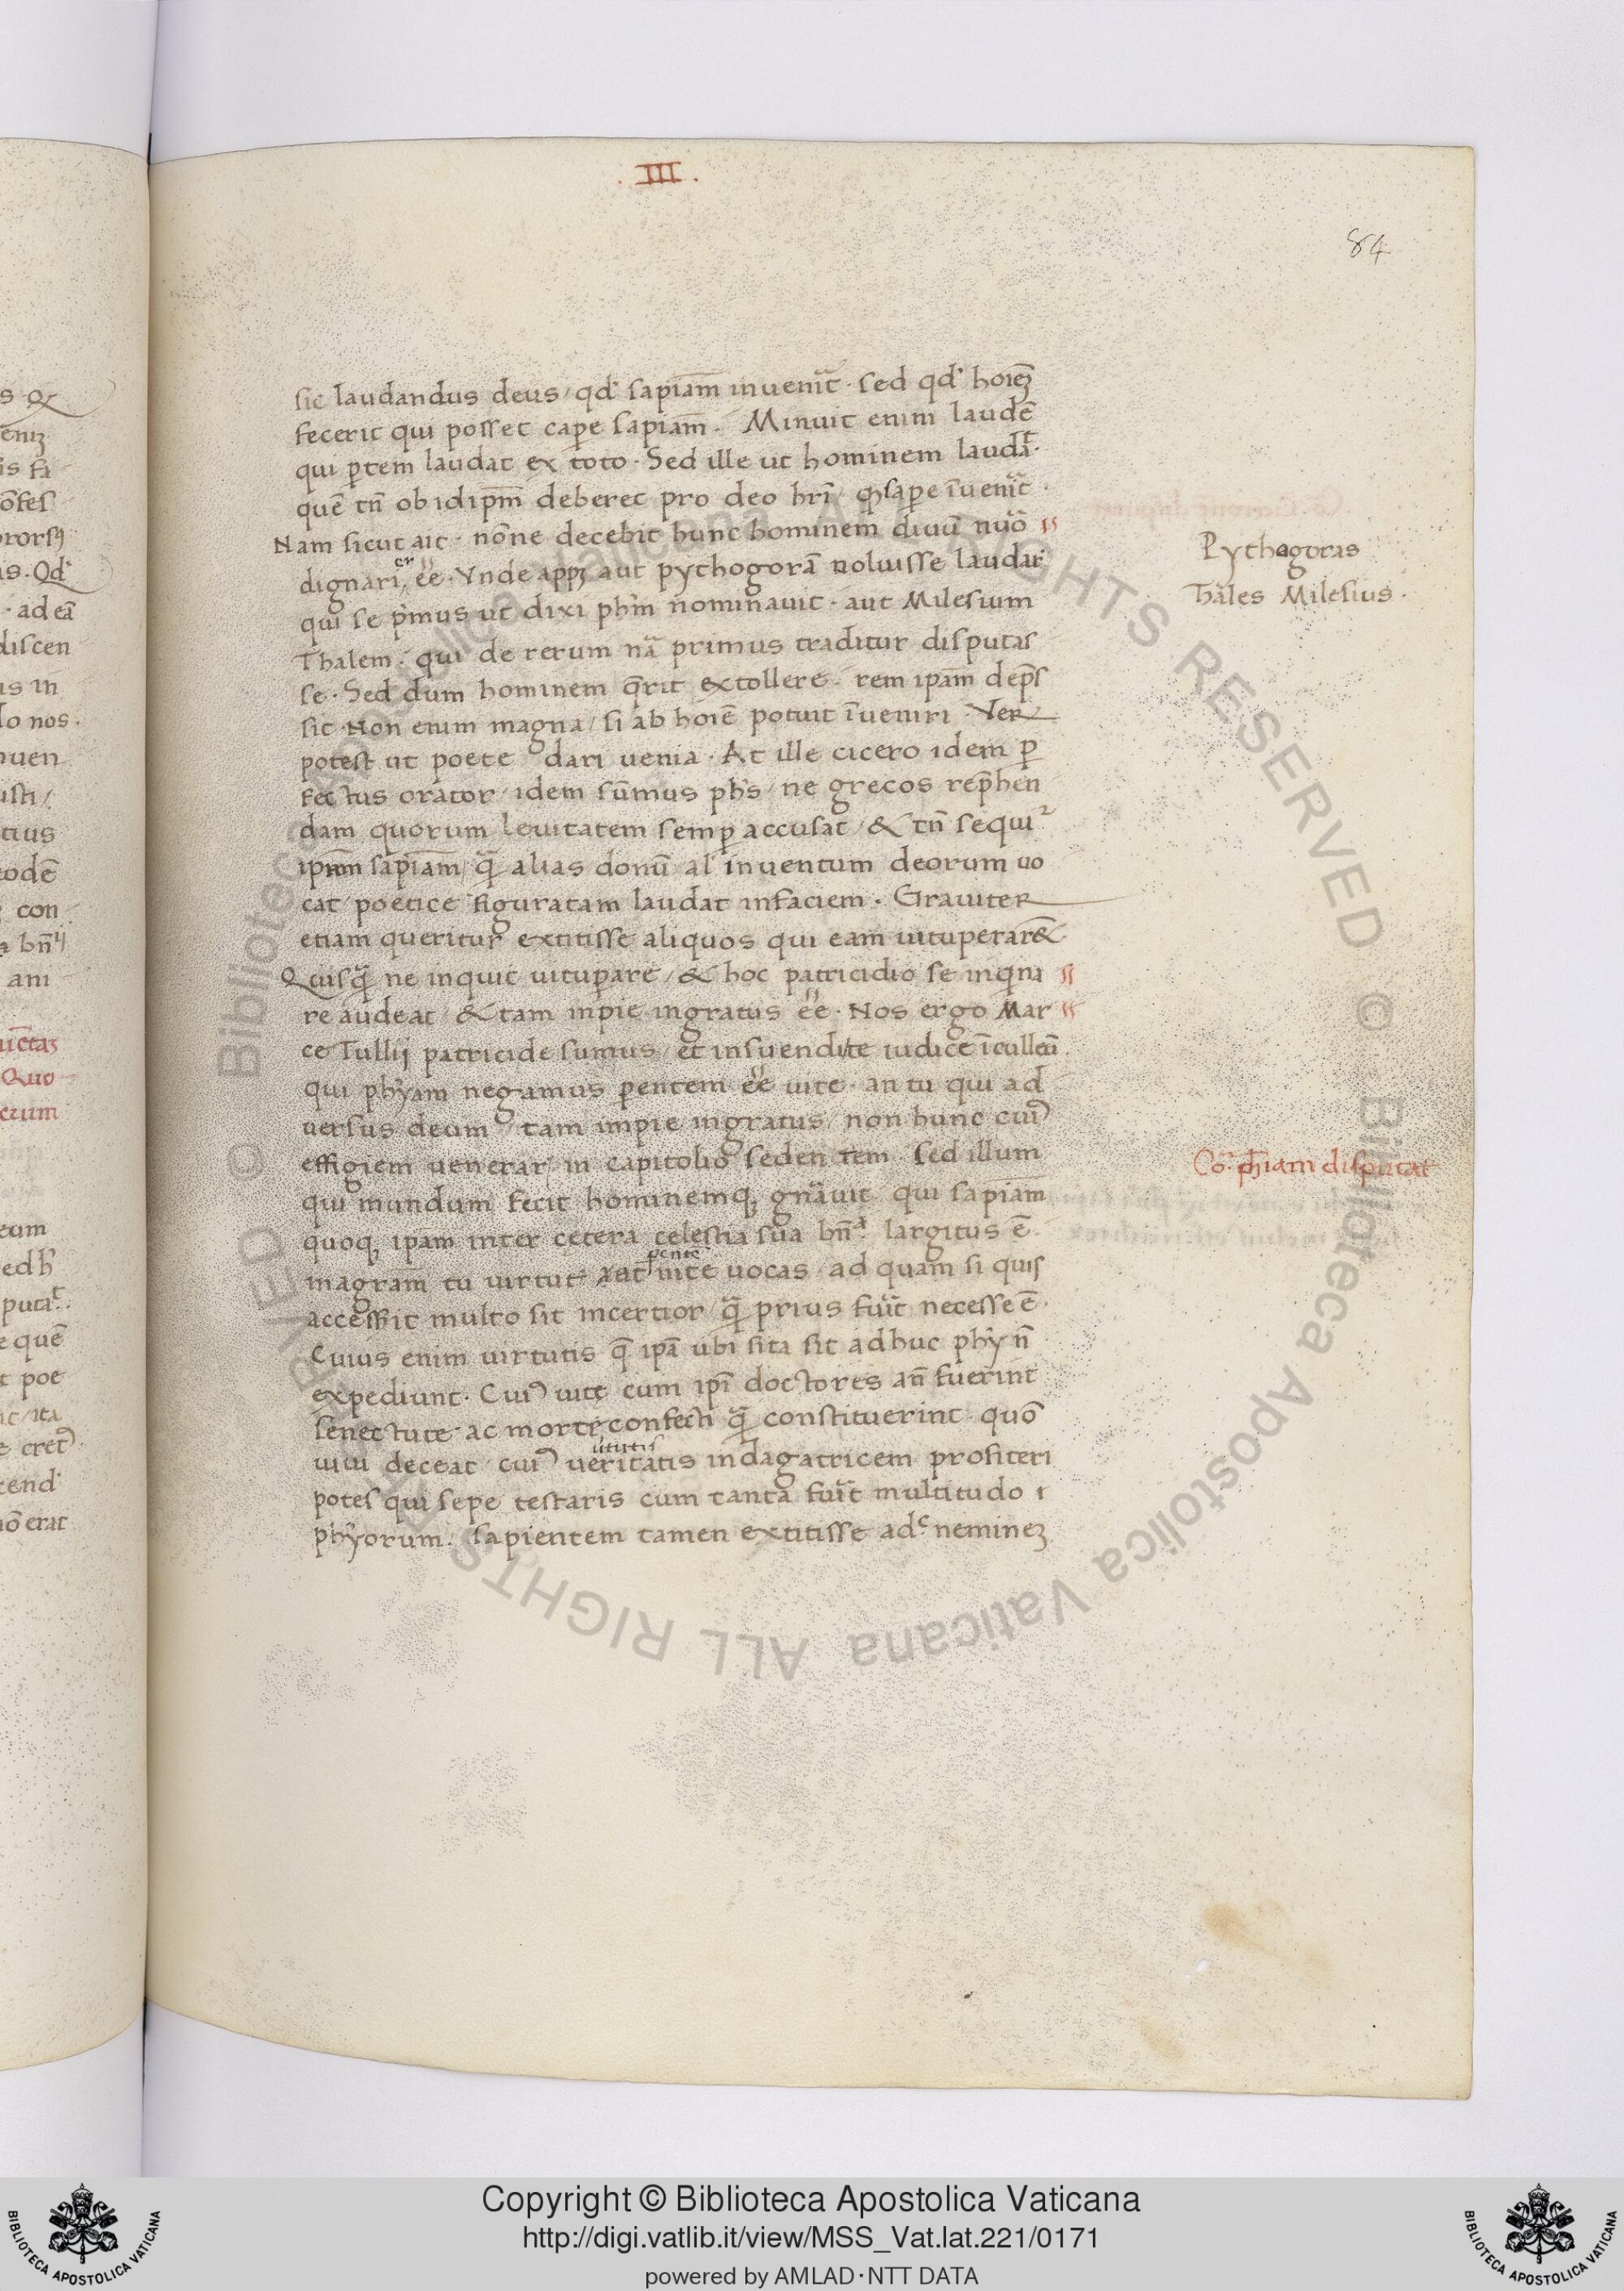 . III .
84
sic laudandus deus / qd' sapiam̄ inuenit̄ . sed qd' hoiēꝫ
fecerit qui posset capꝑe sapiam̄ . Minuit enim laudē
qui ꝑtem laudat ex toto . Sed ille ut hominem laudat .
quē tn̄ ob id ip̄m deberet pro deo hr̄i / qꝫ sapere īuenit̄ .
Nam sicut ait . nōne decebit hunc hominem diuū nūo
dignari cēr eē . Vnde appꝫ aut pythogorā noluisse laudari
qui se p'mus ut dixi phm̄ nominauit . aut Milesium
Thalem . qui de rerum nā primus traditur disputas
se . Sed dum hominem q̄rit extollere . rem ipam̄ dep̄s
sit Non enim magna / si ab hoiē potuit īueniri . Ver
potest ut poete dari uenia . At ille cicero idem ꝑ
fectus orator / idem sūmus phs̄ / ne grecos rep̄hen
dam quorum leuitatem semꝑ accusat / & tn̄ sequi²
ip̄am sapiam̄ / q̄ alias donū al' inuentum deorum uo
cat / poetice figuratam laudat in faciem . Grauiter
etiam queritur extitisse aliquos qui eam uituperarē&
Quisq̄ ne inquit uituꝑare / & hoc patricidio se inq̇na
re audeat / & tam inpie ingratus eē . Nos ergo Mar
ce Tullij patricide sumus / et insuendi te iudice ī culleū .
qui phy̆am negamus ꝑentem eē uite . an tu qui ad
uersus deum / tam impie ingratus / non hunc cui⁹
effigiem uenerar' in capitolio seden tem . sed illum
qui mundum fecit hominemqꝫ gn̄auit . qui sapiam̄
quoqꝫ ipam̄ inter cetera celestia sua bn̄ª largitus ē .
magram̄ tu uirtut' aut ꝑentē uitē uocas / ad quam si quis
accesserit multo sit incertior / q̄ prius fuit̄ necesse ē .
Cuius enim uirtutis q̄ ipā ubi sita sit ad huc phy̆ n̄
expediunt . Cui⁹ uitę cum ipī doctores an̄ fuerint
senectute ac morte confecti q̄ constituerint . quō
uiui deceat / cui⁹ ueritatis uirtutis indagatricem profiteri
potes qui sepe testaris cum tanta fuit̄ multitudo ı
phy̆orum . sapientem tamen extitisse adᶜ nemineꝫ
Pythagoras
Thales Milesius .
Cō . ph̄iam disputat
Copyright © Biblioteca Apostolica Vaticana
http://digi.vatlib.it/view/MSS_Vat.lat.221/0171
powered by AMLAD·NTT DATA
BIBLIOTECA APOSTOLICA VATICANA
BIBLIOTECA APOSTOLICA VATICANA
© Biblioteca Apostolica Vaticana ALL RIGHTS RESERVED © Biblioteca Apostolica Vaticana ALL RIGHTS RESERVED